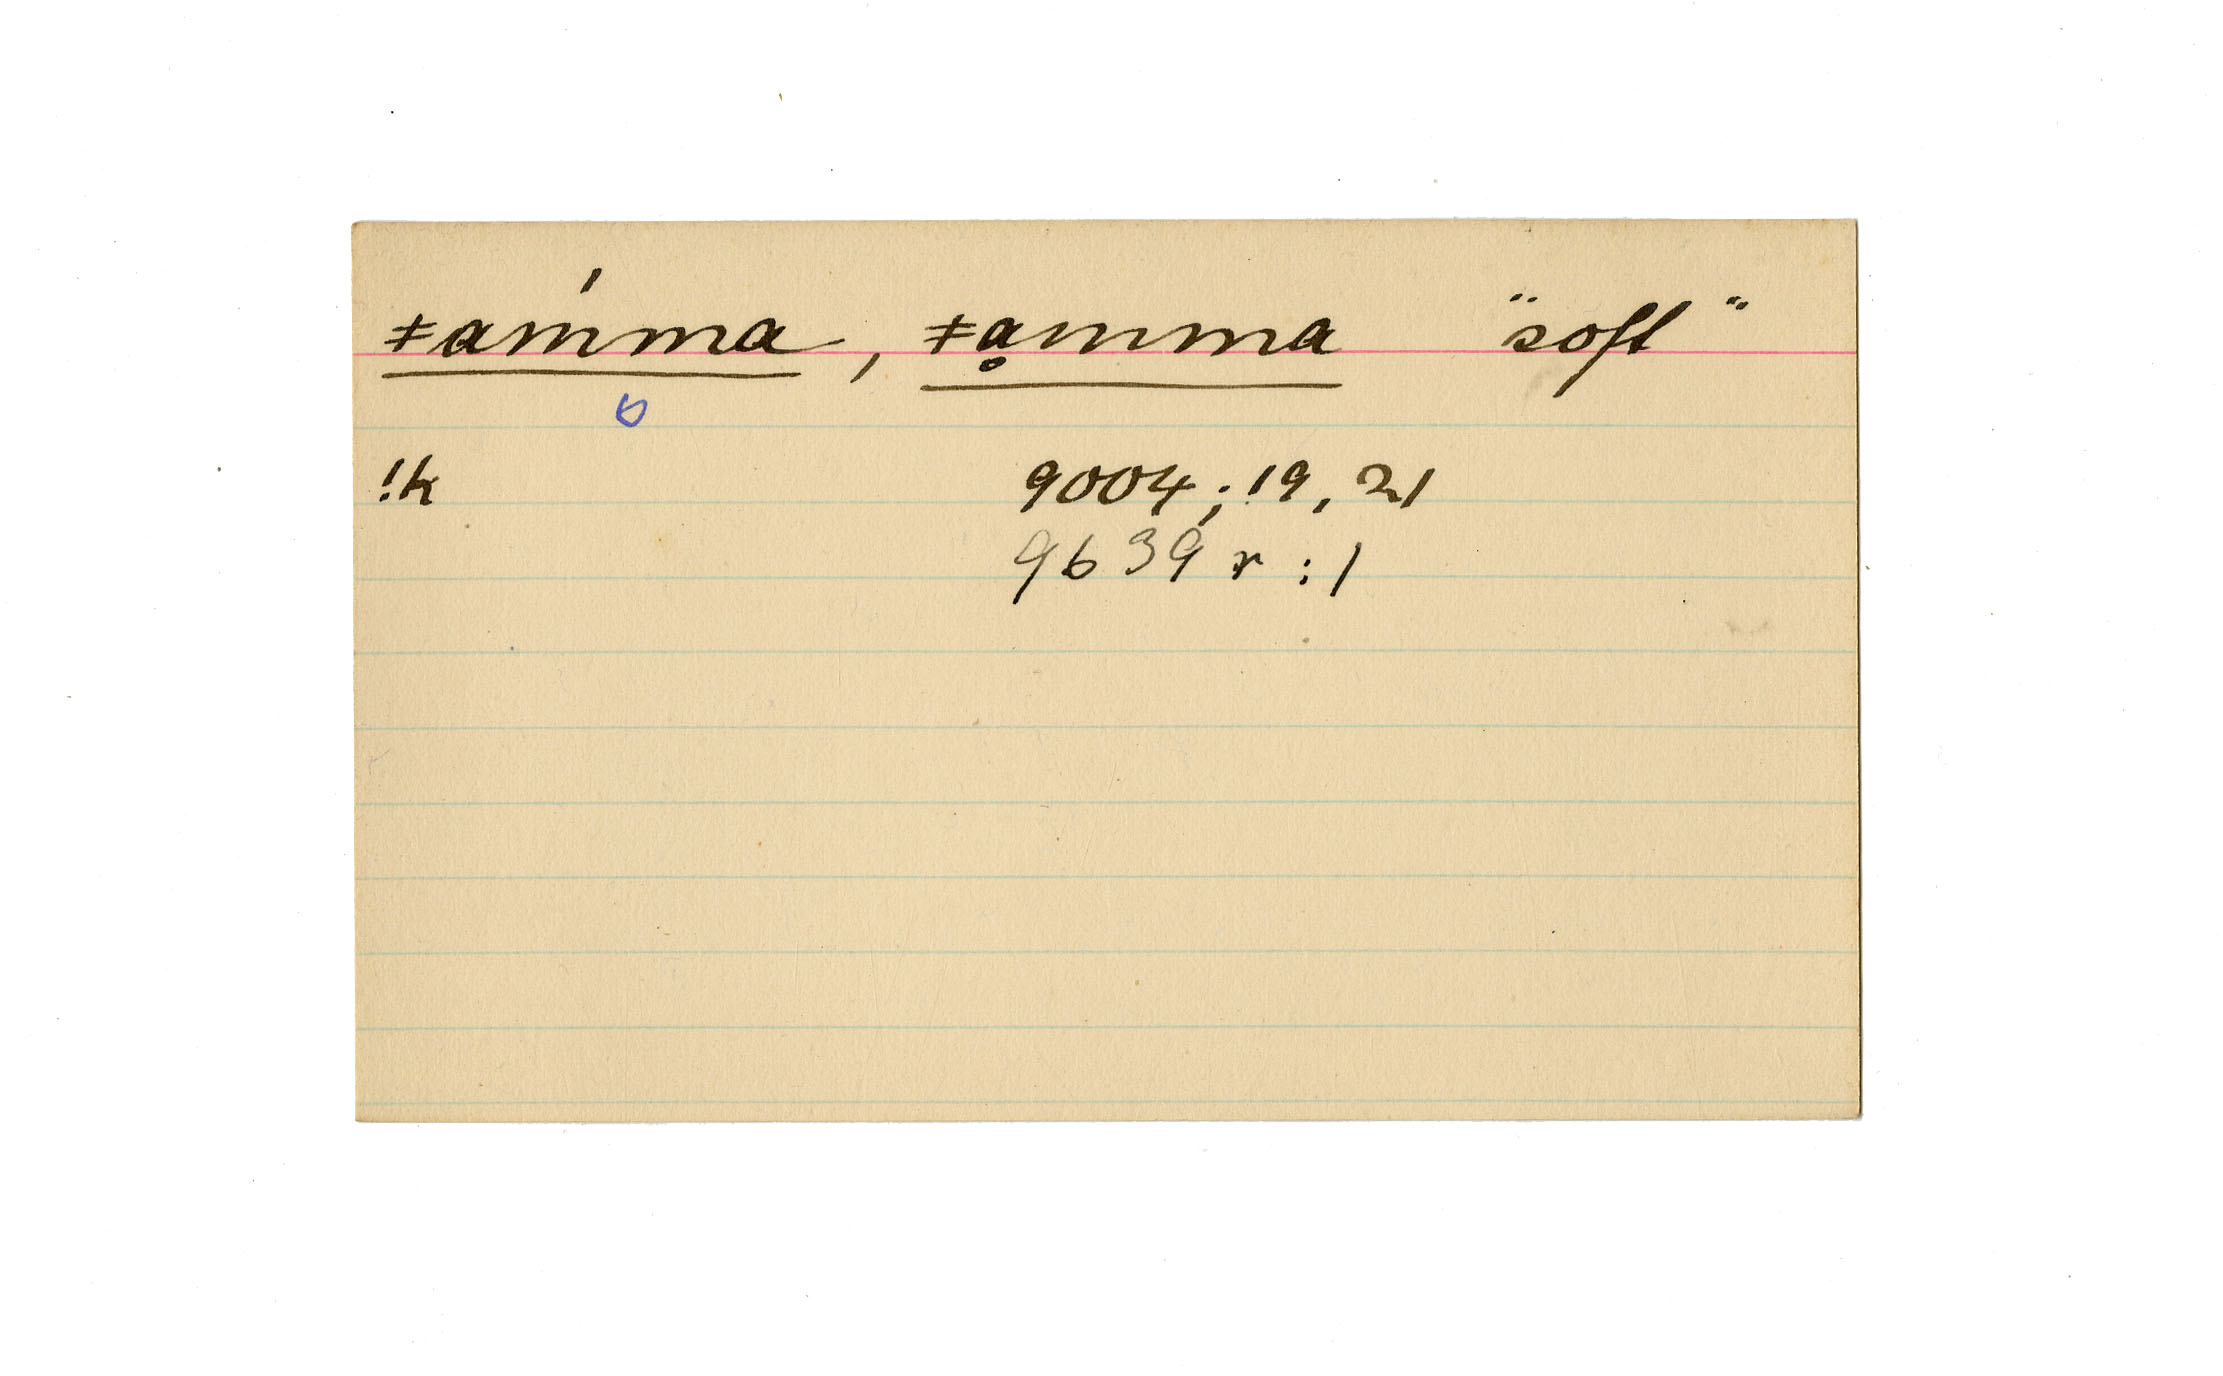 ǂam̍ma, ǂḁmma "soft"
6
!k 9004; 19, 21
9639 r: 1